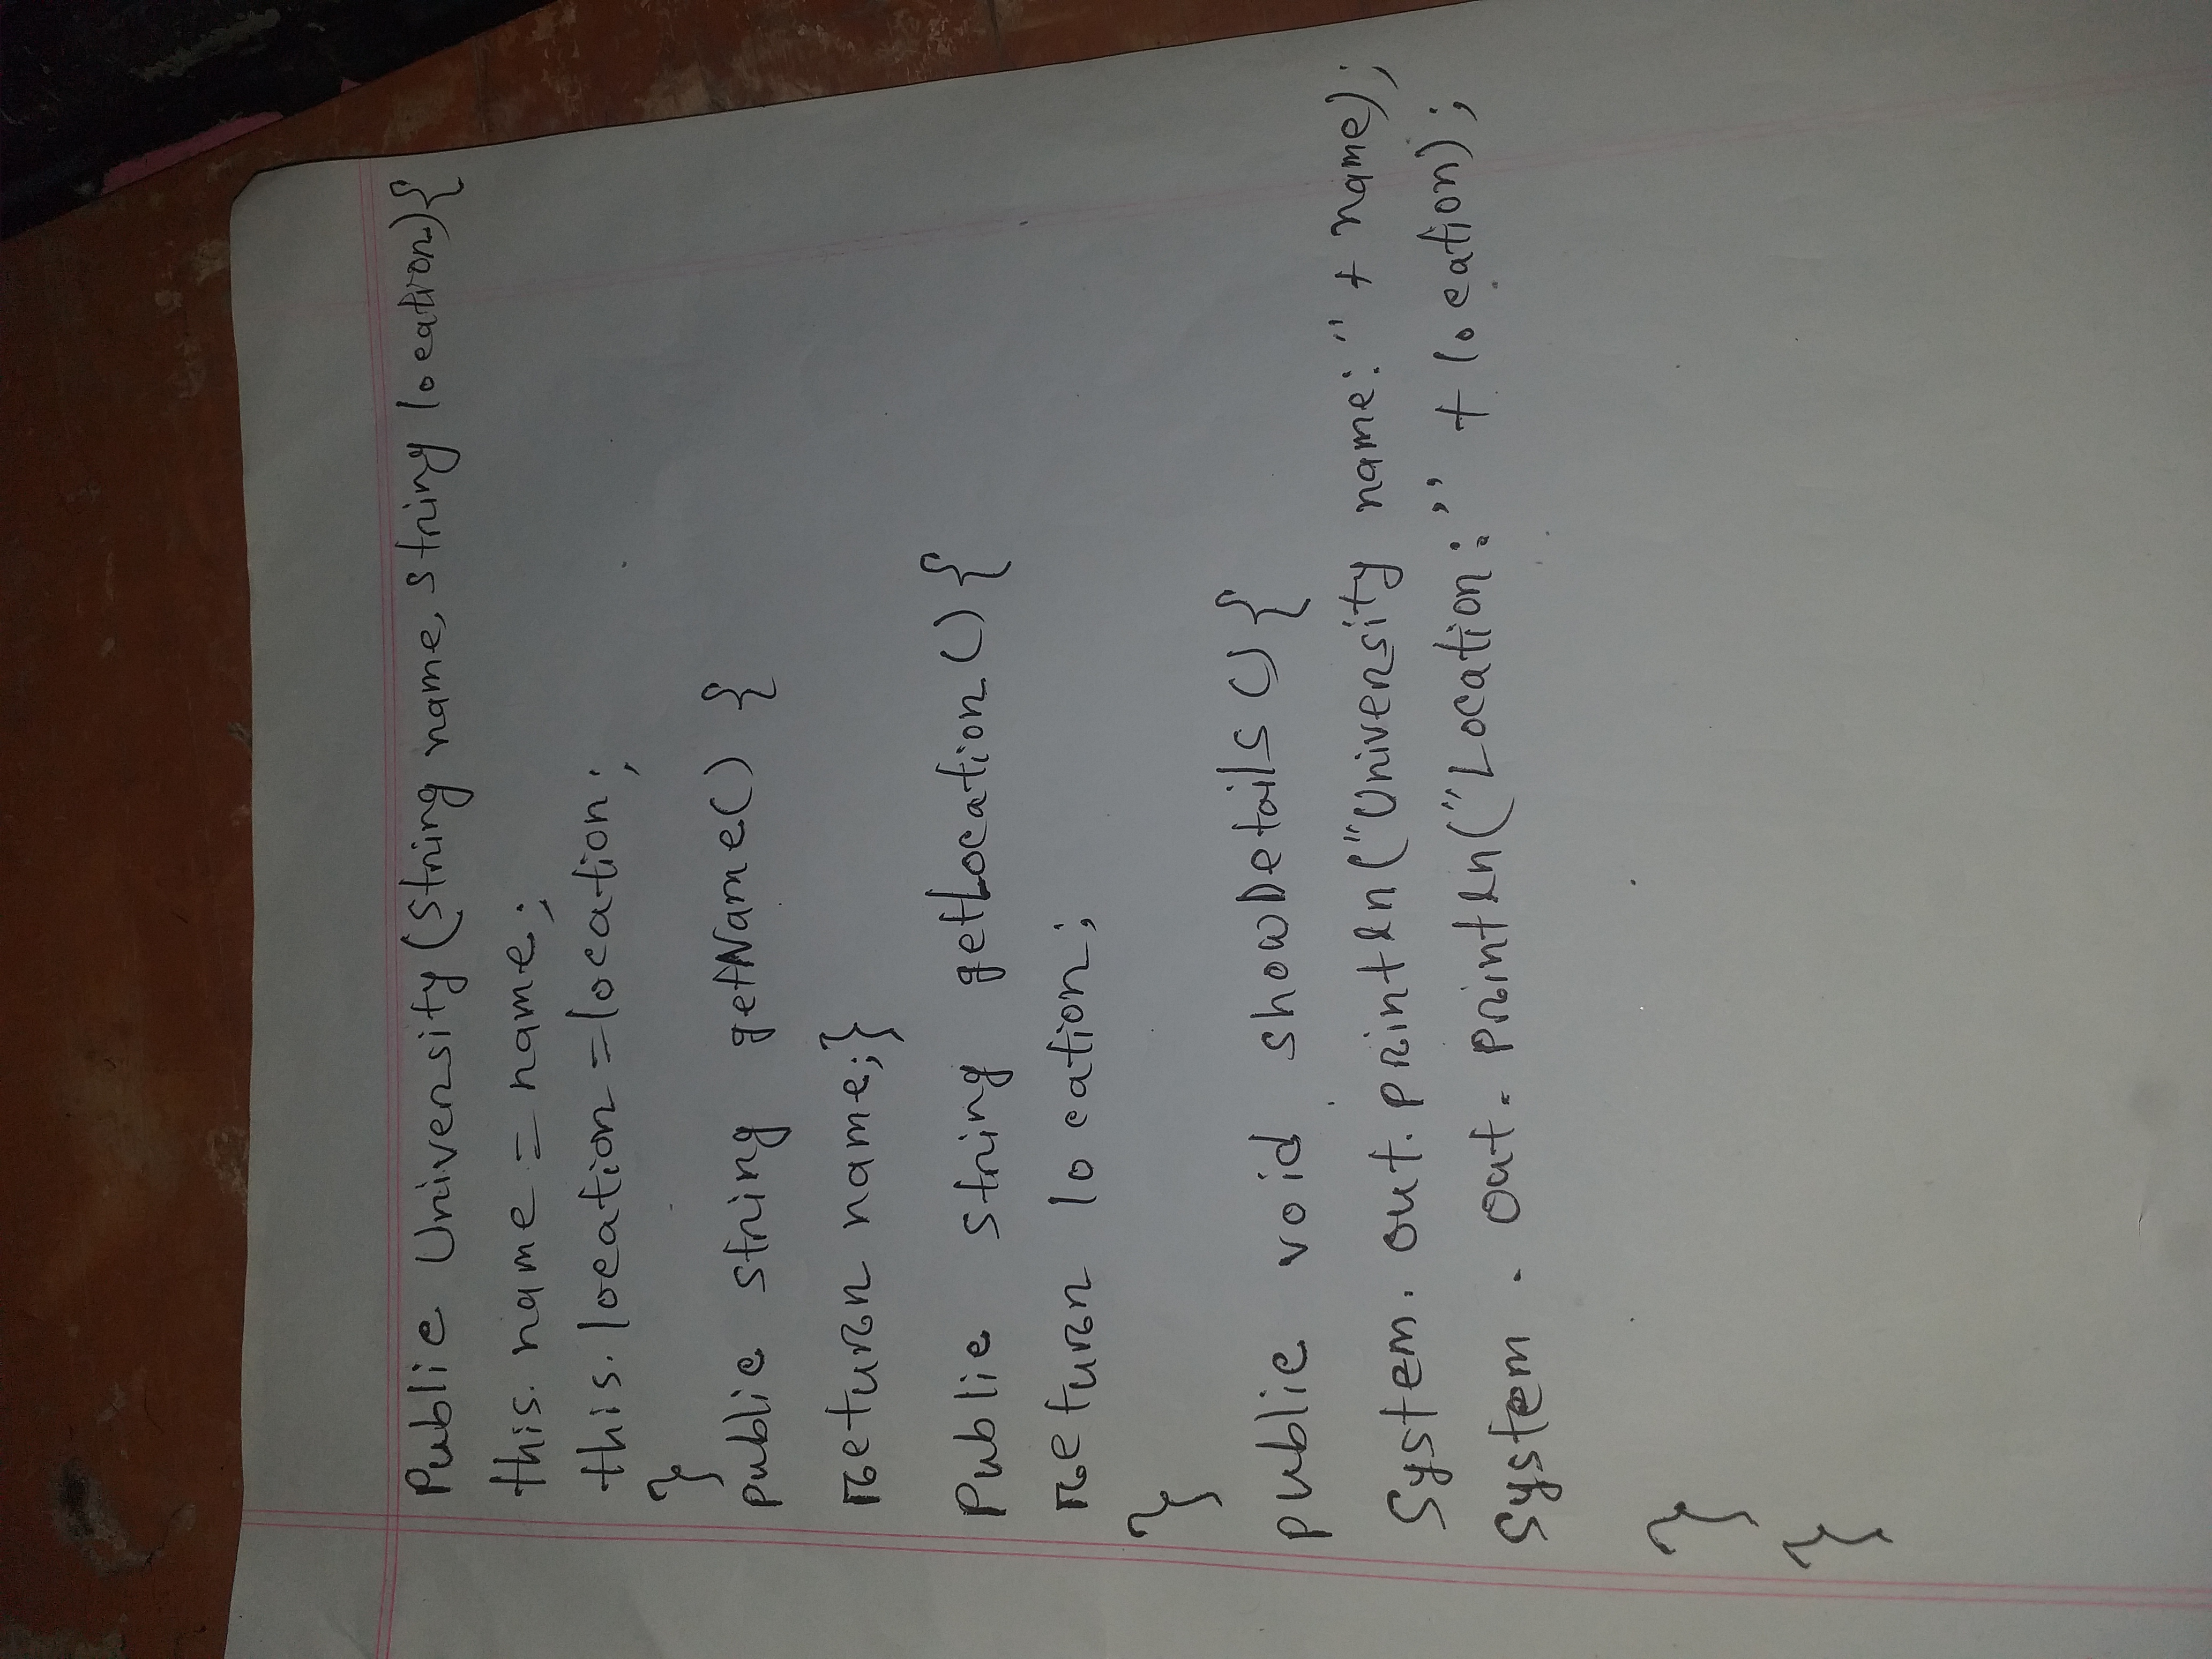 Public University (String name, string location){
this. name = name;
this. location = location;
}
public string getName() {
return name;}
Public string getLocation () {
return location;
}
public void showDetails () {
System. out. println ("University name:" + name);
System. out. println ("Location:" + location);
}
}